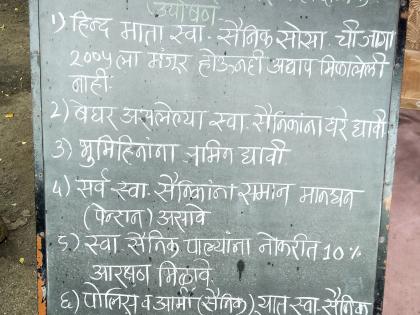 (उपोषण)
१) हिन्द माता स्वा. सैनिक सोसा. ची जागा
२००५ ला मंजूर होऊनही अद्याप मिळालेली
नाही.
२) बेघर असलेल्या स्वा. सैनिकांना घरे द्यावी
३) भुमिहिनांना जमिन द्यावी
४) सर्व स्वा. सैनिकांना समान मानधन
(पेन्शन) असावे
५) स्वा. सैनिक पाल्यांना नोकरीत 10%
आरक्षण मिळावे
६) पोलिस व आर्मी (सैनिक) यात स्वा. सैनिक